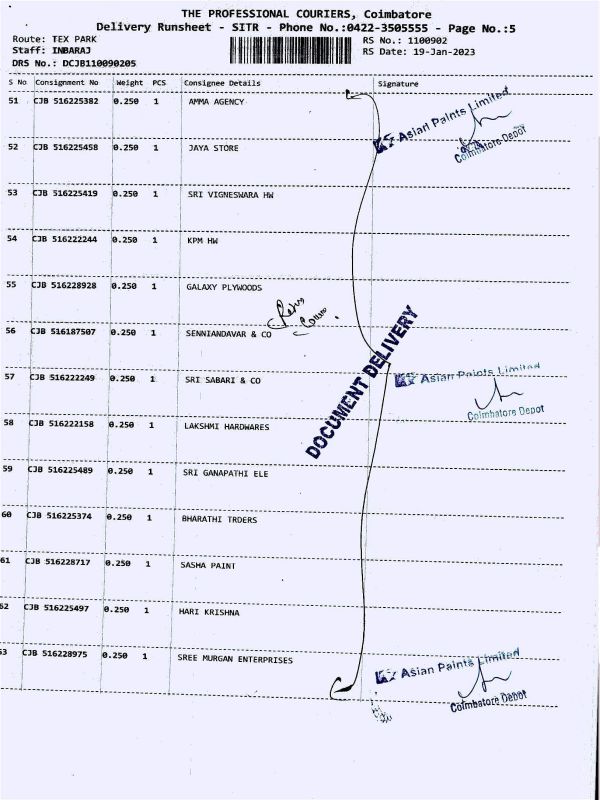 THE PROFESSIONAL COURIERS, Coimbatore
Delivery Runsheet - SITR - Phone No.:0422-3505555 - Page No.:5
Route: TEX PARK
RS No.: 1100902
Staff: INBARAJ
RS Date: 19-Jan-2023
DRS No.: DCJB110090205
S No Consignment No Weight PCS Consignee Details Signature
51 CJB 516225382 0.250 1 AMMA AGENCY
Asian Paints Limited
Coimbatore Depot
52 CJB 516225458 0.250 1 JAYA STORE
53 CJB 516225419 0.250 1 SRI VIGNESWARA HW
54 CJB 516222244 0.250 1 KPM HW
55 CJB 516228928 0.250 1 GALAXY PLYWOODS
56 CJB 516187507 0.250 1 SENNIANDAVAR & CO
DOCUMENT DELIVERY
57 CJB 516222249 0.250 1 SRI SABARI & CO
Asian Paints Limited
Coimbatore Depot
58 CJB 516222158 0.250 1 LAKSHMI HARDWARES
59 CJB 516225489 0.250 1 SRI GANAPATHI ELE
60 CJB 516225374 0.250 1 BHARATHI TRDERS
61 CJB 516228717 0.250 1 SASHA PAINT
62 CJB 516225497 0.250 1 HARI KRISHNA
53 CJB 516228975 0.250 1 SREE MURGAN ENTERPRISES
Asian Paints Limited
Coimbatore Depot